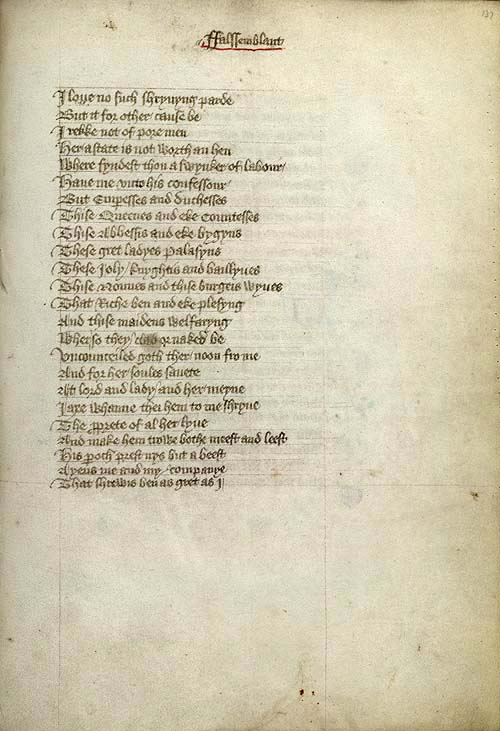 Ffalssemblant
I loue no such shryuyng parde
But it for other cause be
I rekke not of pore men
Her astate is not worth an hen
Where fyndest thou a swynker of labour
Haue me vnto his confessour
But Emperesses and duchesses
Thise Queenes and eke Countesses
Thise Abbessis and eke bygyns
These gret ladyes palasyns
These Joly knyghtis and baillyues
Thise Nonnes and thise burgeis wyues
That Riche ben and eke plesyng
And thise maidens welfaryng
Wherso they clad or naked be
Vncounceiled goth ther noon fro me
And for her soules sauete
At lord and lady and her meyne
I axe whanne thei hem to me shryue
The pprete of al her lyue
And make hem trowe bothe meest and leest
His poch prest nys but a beest
Ayens me and my companye
That shrewis ben as gret as I